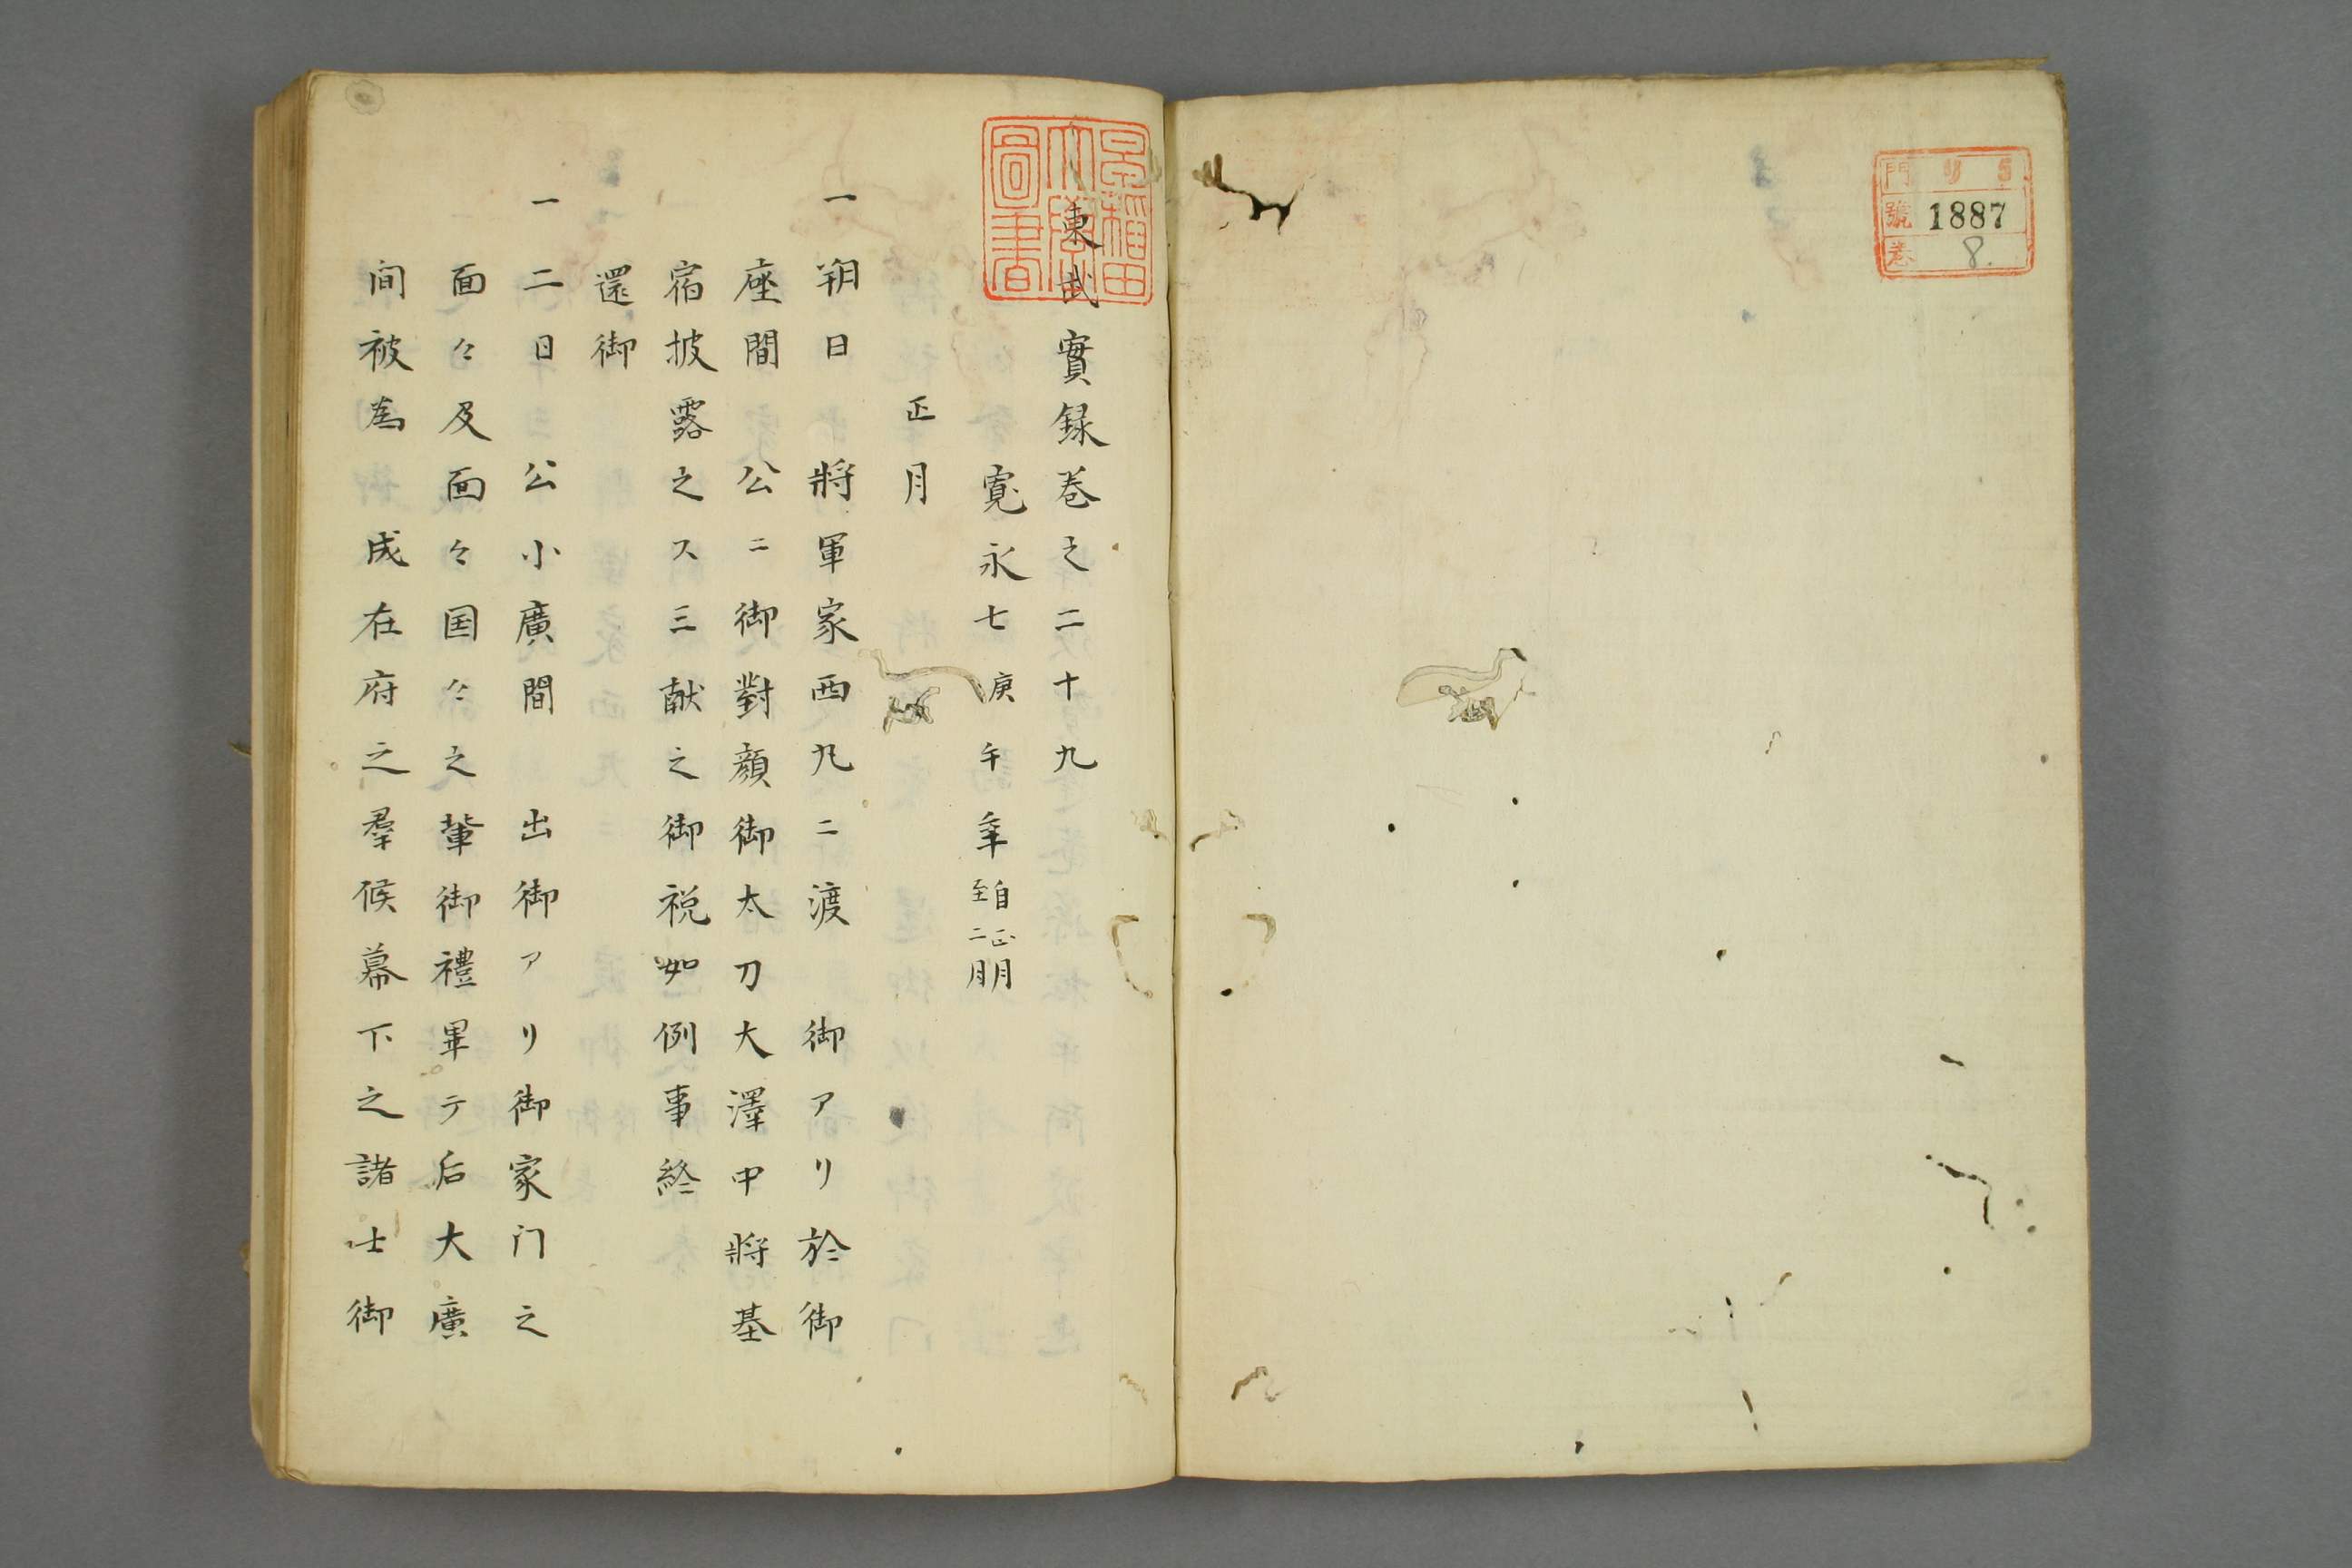 門 リ 5
號 1887
巻 8.
早稲田
大學
圖書
東武實録巻之二十九
寛永七庚午年 自正月 至二月
正月
一朔日 將軍家西丸ニ渡 御アリ於御
座間 公ニ御對顔御太刀大澤中將基
宿披露之ス三献之御祝如例事終
還御
一二日 公小廣間 出御アリ御家门之
面々及面々国々之輩御禮畢テ后大廣
间被為 成在府之羣候幕下之諸士御